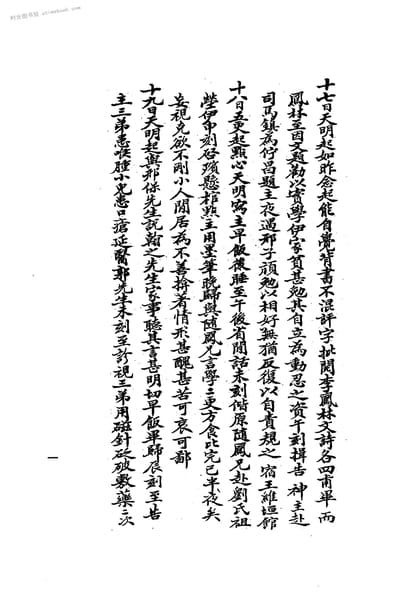 十七日天明起如昨念起能自覺背書不混評字批閱李鳳林文詩各四甫畢而
鳳林至因文題勸以實學伊家貧甚勉其自立為動忍之資午刻揖告 神主赴
司馬鎮為佇昌題主夜過邪子頑勉以相好無猶反復以自責規之 宿王維垣館
十八日五更起點心天明寫主早飯後睡至午後省閒話未刻偕原隨鳳兄赴劉氏祖
塋伊申刻啓殯懸棺點主用墨筆晚歸與隨鳳兄言學二更方食比完已半夜矣
妄視克欲不剛小人閒居為不善揜著情形甚醜甚苦可哀可鄙
十九日天明起與邪保先生說翰之先生家事聽其言甚明切早飯畢歸辰刻至告
主三弟患喉腫小兒患口瘡延醫郭先生未刻至診視三弟用磁針砭破敷藥二次
一